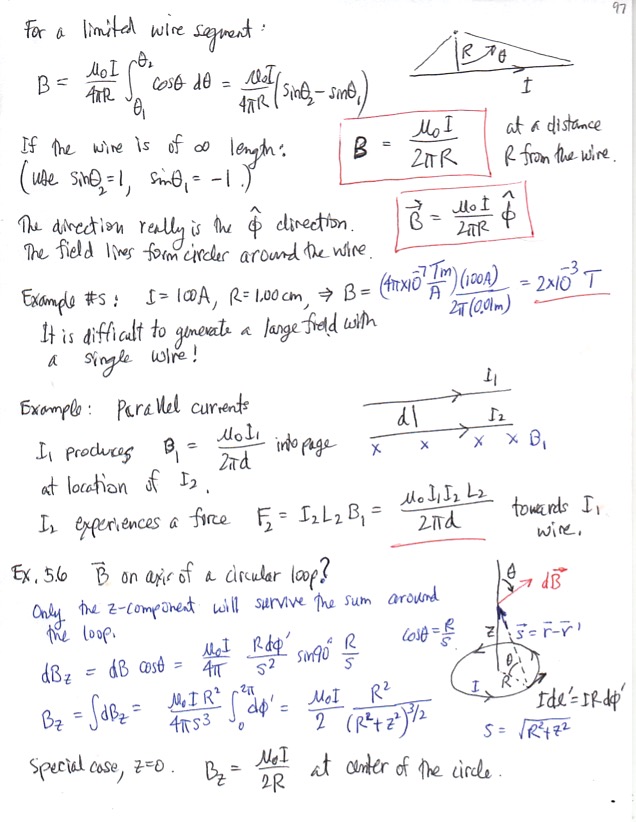 97
For a limited wire segment:
B = μ₀I/4πR ∫_θ₁^θ₂ cosθ dθ = μ₀I/4πR (sinθ₂ - sinθ₁)
R θ
I
If the wire is of ∞ length:
(use sinθ₂=1, sinθ₁ = -1.)
B = μ₀I/2πR
at a distance
R from the wire.
The direction really is the φ̂ direction.
The field lines form circles around the wire.
B⃗ = μ₀I/2πR φ̂
Example #s: I=100A, R=1.00cm, ⇒ B = (4π×10⁻⁷ Tm/A)(100A)/2π(0.01m) = 2×10⁻³ T
It is difficult to generate a large field with
a single wire!
Example: Parallel currents
I₁
d I₂
x x x x B₁
I₁ produces B₁ = μ₀I₁/2πd into page
at location of I₂.
I₂ experiences a force F₂ = I₂L₂B₁ = μ₀I₁I₂L₂/2πd towards I₁
wire.
Ex. 5.6 B⃗ on axis of a circular loop?
Only the z-component will survive the sum around
the loop.
cosθ = R/s
dB_z = dB cosθ = μ₀I/4π Rdφ'/s² sin90° R/s
B_z = ∫dB_z = μ₀IR²/4πs³ ∫₀^2π dφ' = μ₀I/2 R²/(R²+z²)^3/2
θ dB⃗
z s⃗ = r⃗-r⃗'
θ
R
I
Idl'=IRdφ'
s = √R²+z²
Special case, z=0. B_z = μ₀I/2R at center of the circle.